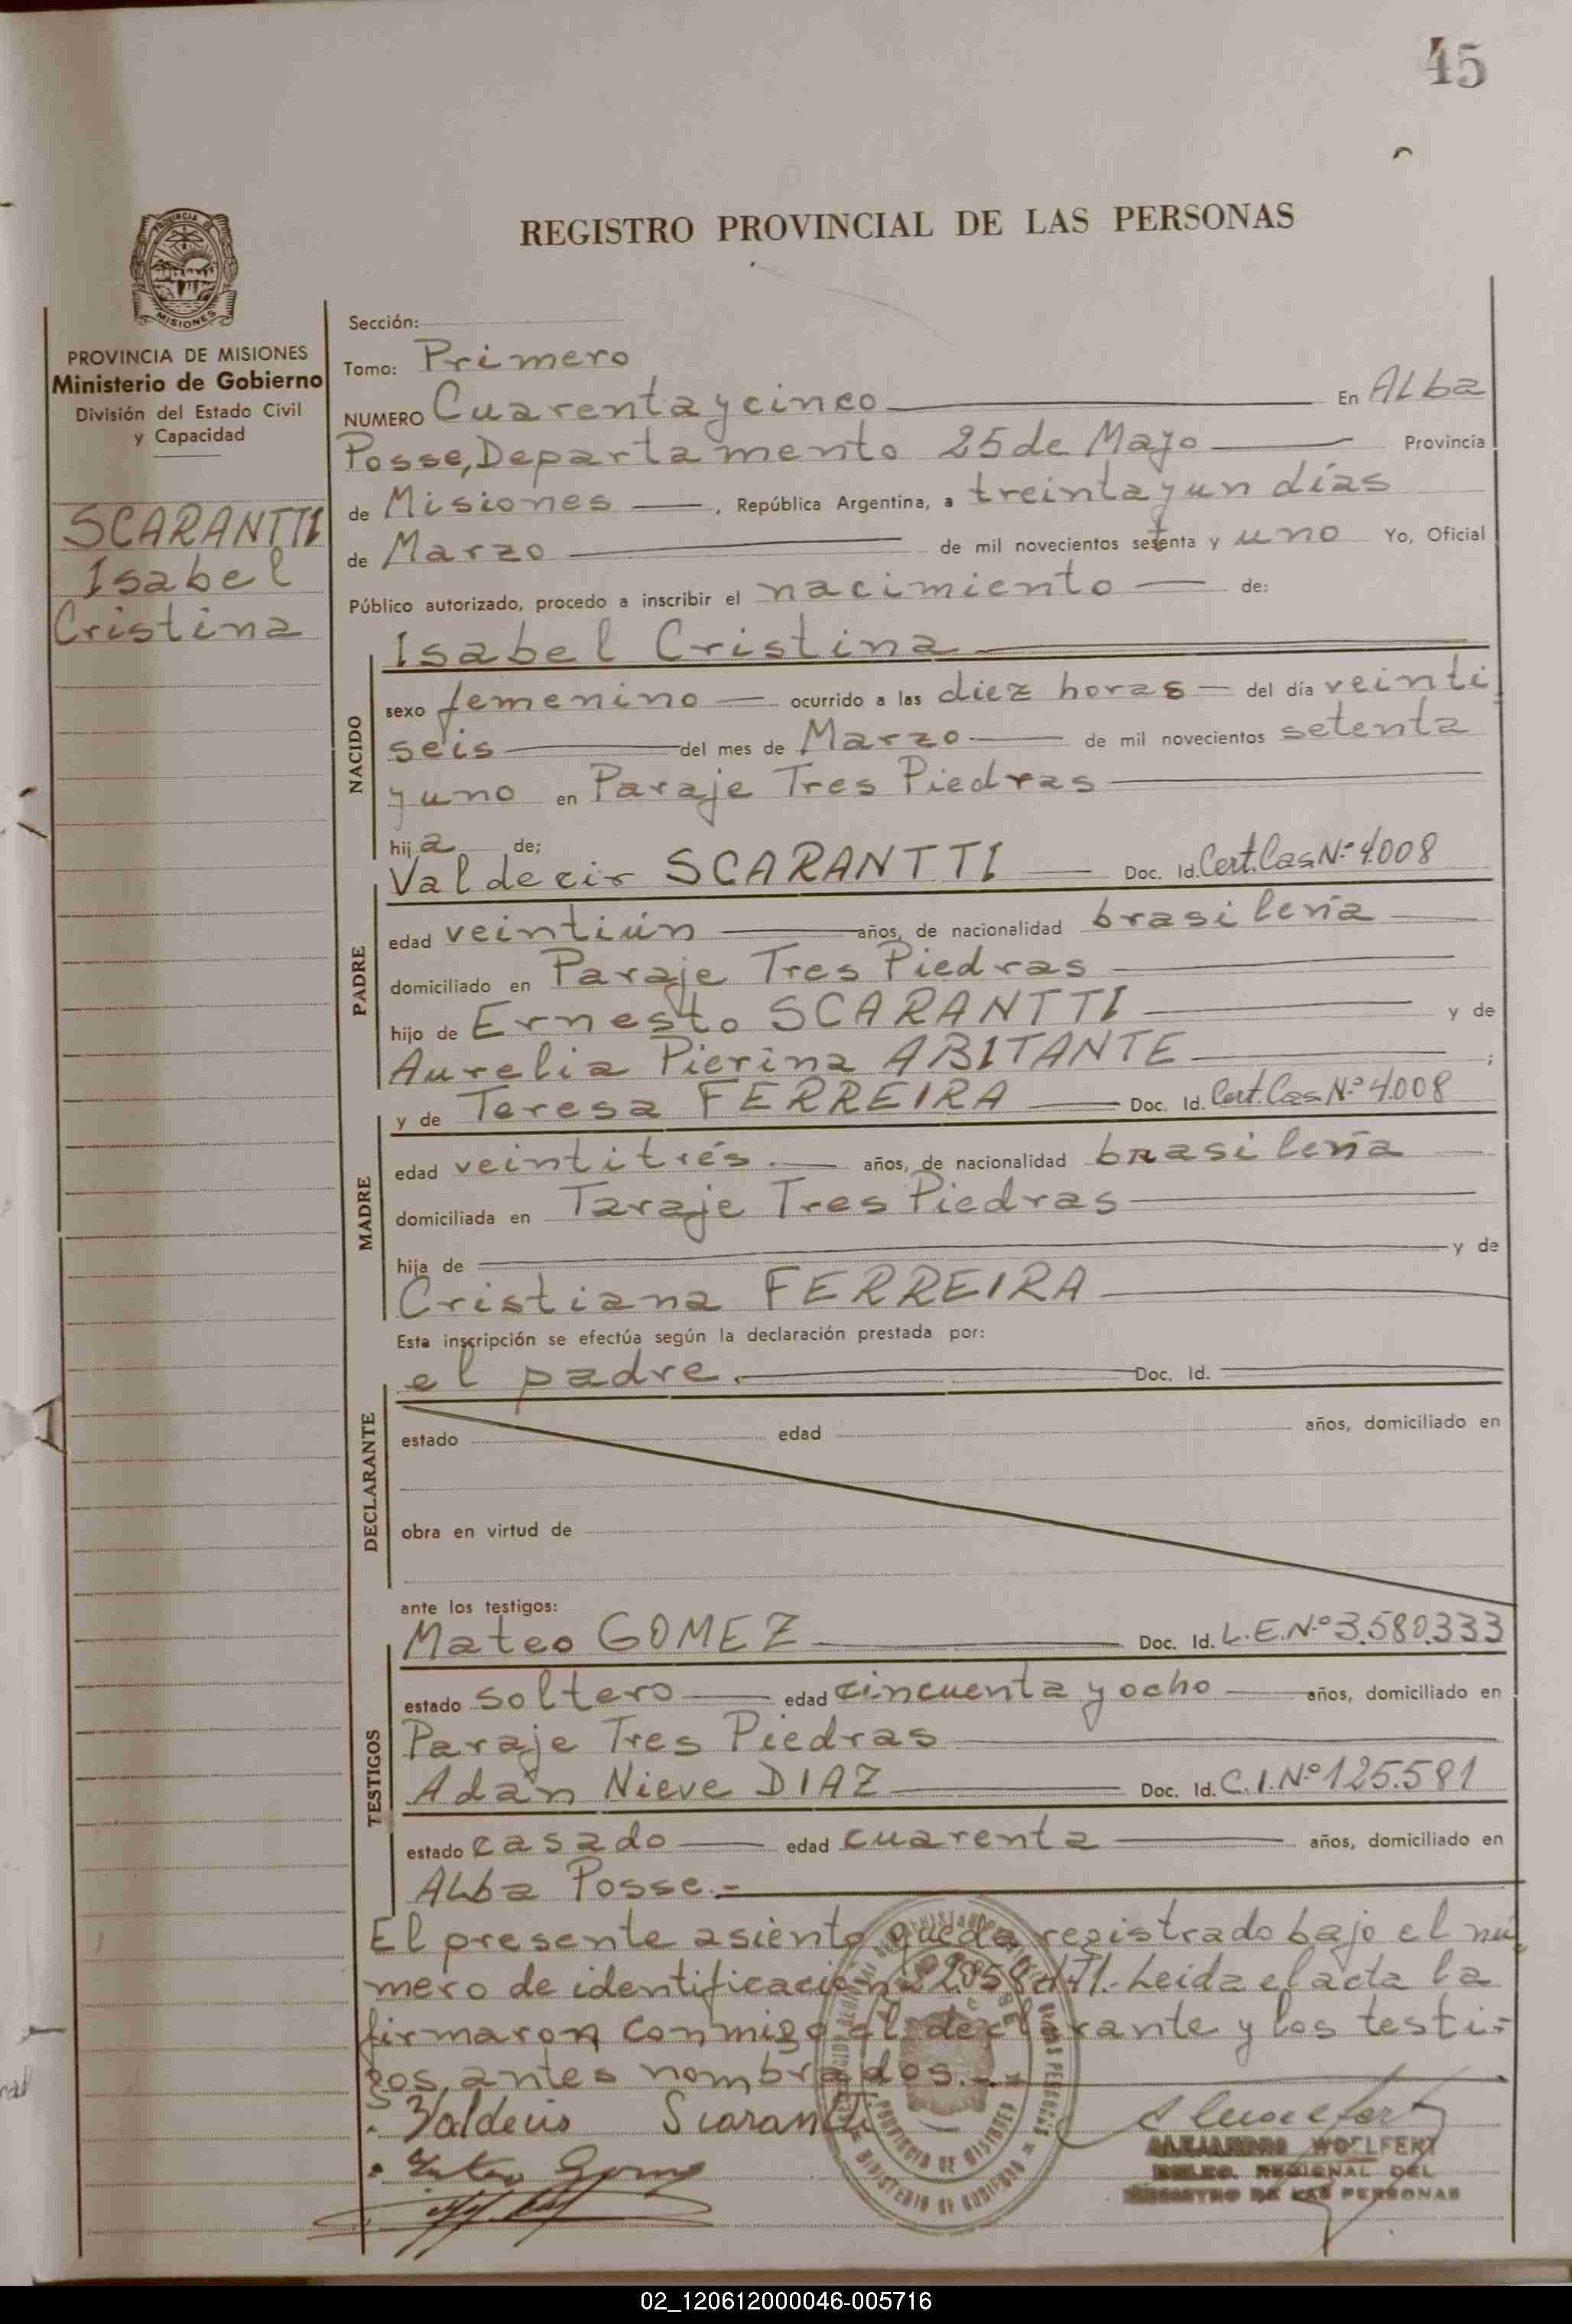 45
REGISTRO PROVINCIAL DE LAS PERSONAS
PROVINCIA
MISIONES
PROVINCIA DE MISIONES
Ministerio de Gobierno
División del Estado Civil
y Capacidad
SCARANTTI
Isabel
Cristina
Sección:
Tomo: Primero
NUMERO Cuarenta y cinco En ALba
Posse, Departamento 25 de Mayo Provincia
de Misiones, República Argentina, a treinta y un días
de Marzo de mil novecientos setenta y uno Yo, Oficial
Público autorizado, procedo a inscribir el nacimiento de:
NACIDO
Isabel Cristina
sexo femenino ocurrido a las diez horas del día veinti
seis del mes de Marzo de mil novecientos setenta
y uno en Paraje Tres Piedras
hija de;
PADRE
Valdecir SCARANTTI Doc. Id. Cert. Cas Nº 4.008
edad veintiún años, de nacionalidad brasileña
domiciliado en Paraje Tres Piedras
hijo de Ernesto SCARANTTI y de
Aurelia Pierina ABITANTE ;
MADRE
y de Teresa FERREIRA Doc. Id. Cert. Cas Nº 4.008
edad veintitrés. años, de nacionalidad brasileña
domiciliada en Taraje Tres Piedras
hija de y de
Cristiana FERREIRA
Esta inscripción se efectúa según la declaración prestada por:
DECLARANTE
el padre. Doc. Id.
estado edad años, domiciliado en
obra en virtud de
ante los testigos:
TESTIGOS
Mateo GOMEZ Doc. Id. L.E.Nº 3.580.333
estado soltero edad cincuenta y ocho años, domiciliado en
Paraje Tres Piedras
Adán Nieve DIAZ Doc. Id. C.I.Nº 125.581
estado casado edad cuarenta años, domiciliado en
ALba Posse.-
El presente asiento queda registrado bajo el nú
mero de identificación Leida el acta la
firmaron conmigo el declarante y los testi-
gos, antes nombrados.
Valdecir Scarantti
Gomez
ALEJANDRO WOELFERT
DELEG. REGIONAL DEL
REGISTRO DE LAS PERSONAS
PROVINCIA DE MISIONES
MINISTERIO DE GOBIERNO
02_120612000046-005716